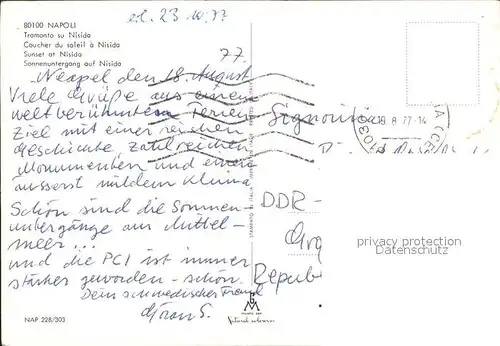 80100 NAPOLI
Tramonto su Nisida
Coucher du soleil à Nisida
Sunset at Nisida
Sonnenuntergang auf Nisida
23 10.77
77.
Neapel den 18 August
Viele Grüße aus einem
weltberühmten Ferien-
Ziel mit einer reichen
Geschichte, zahlreichen
Monumenten und einem
äusserst mildem Klima
Schön sind die Sonnen-
untergänge am Mittel-
meer...
und die PCI ist immer
stärker geworden - schön.
Dein schwedischer Freund
Göran S.
Signorina
8 77-14
DDR-
Repub
privacy protection
Datenschutz
STAMPATO IN ITALIA
MILANO
Natural colour
NAP 228/303